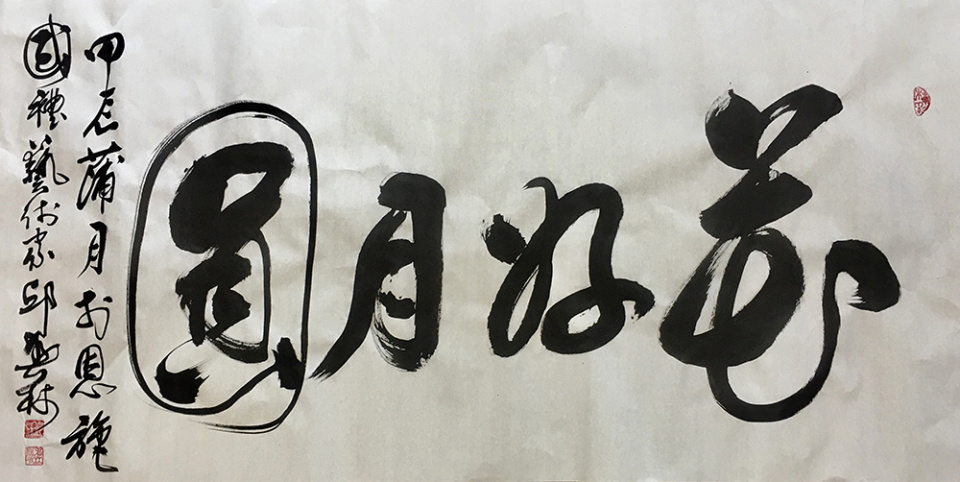 花好月圓
甲辰蒲月於恩施
國禮藝術家邱興林